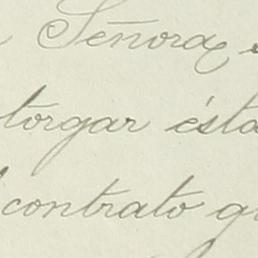 Señora
torgar ésta
contrato